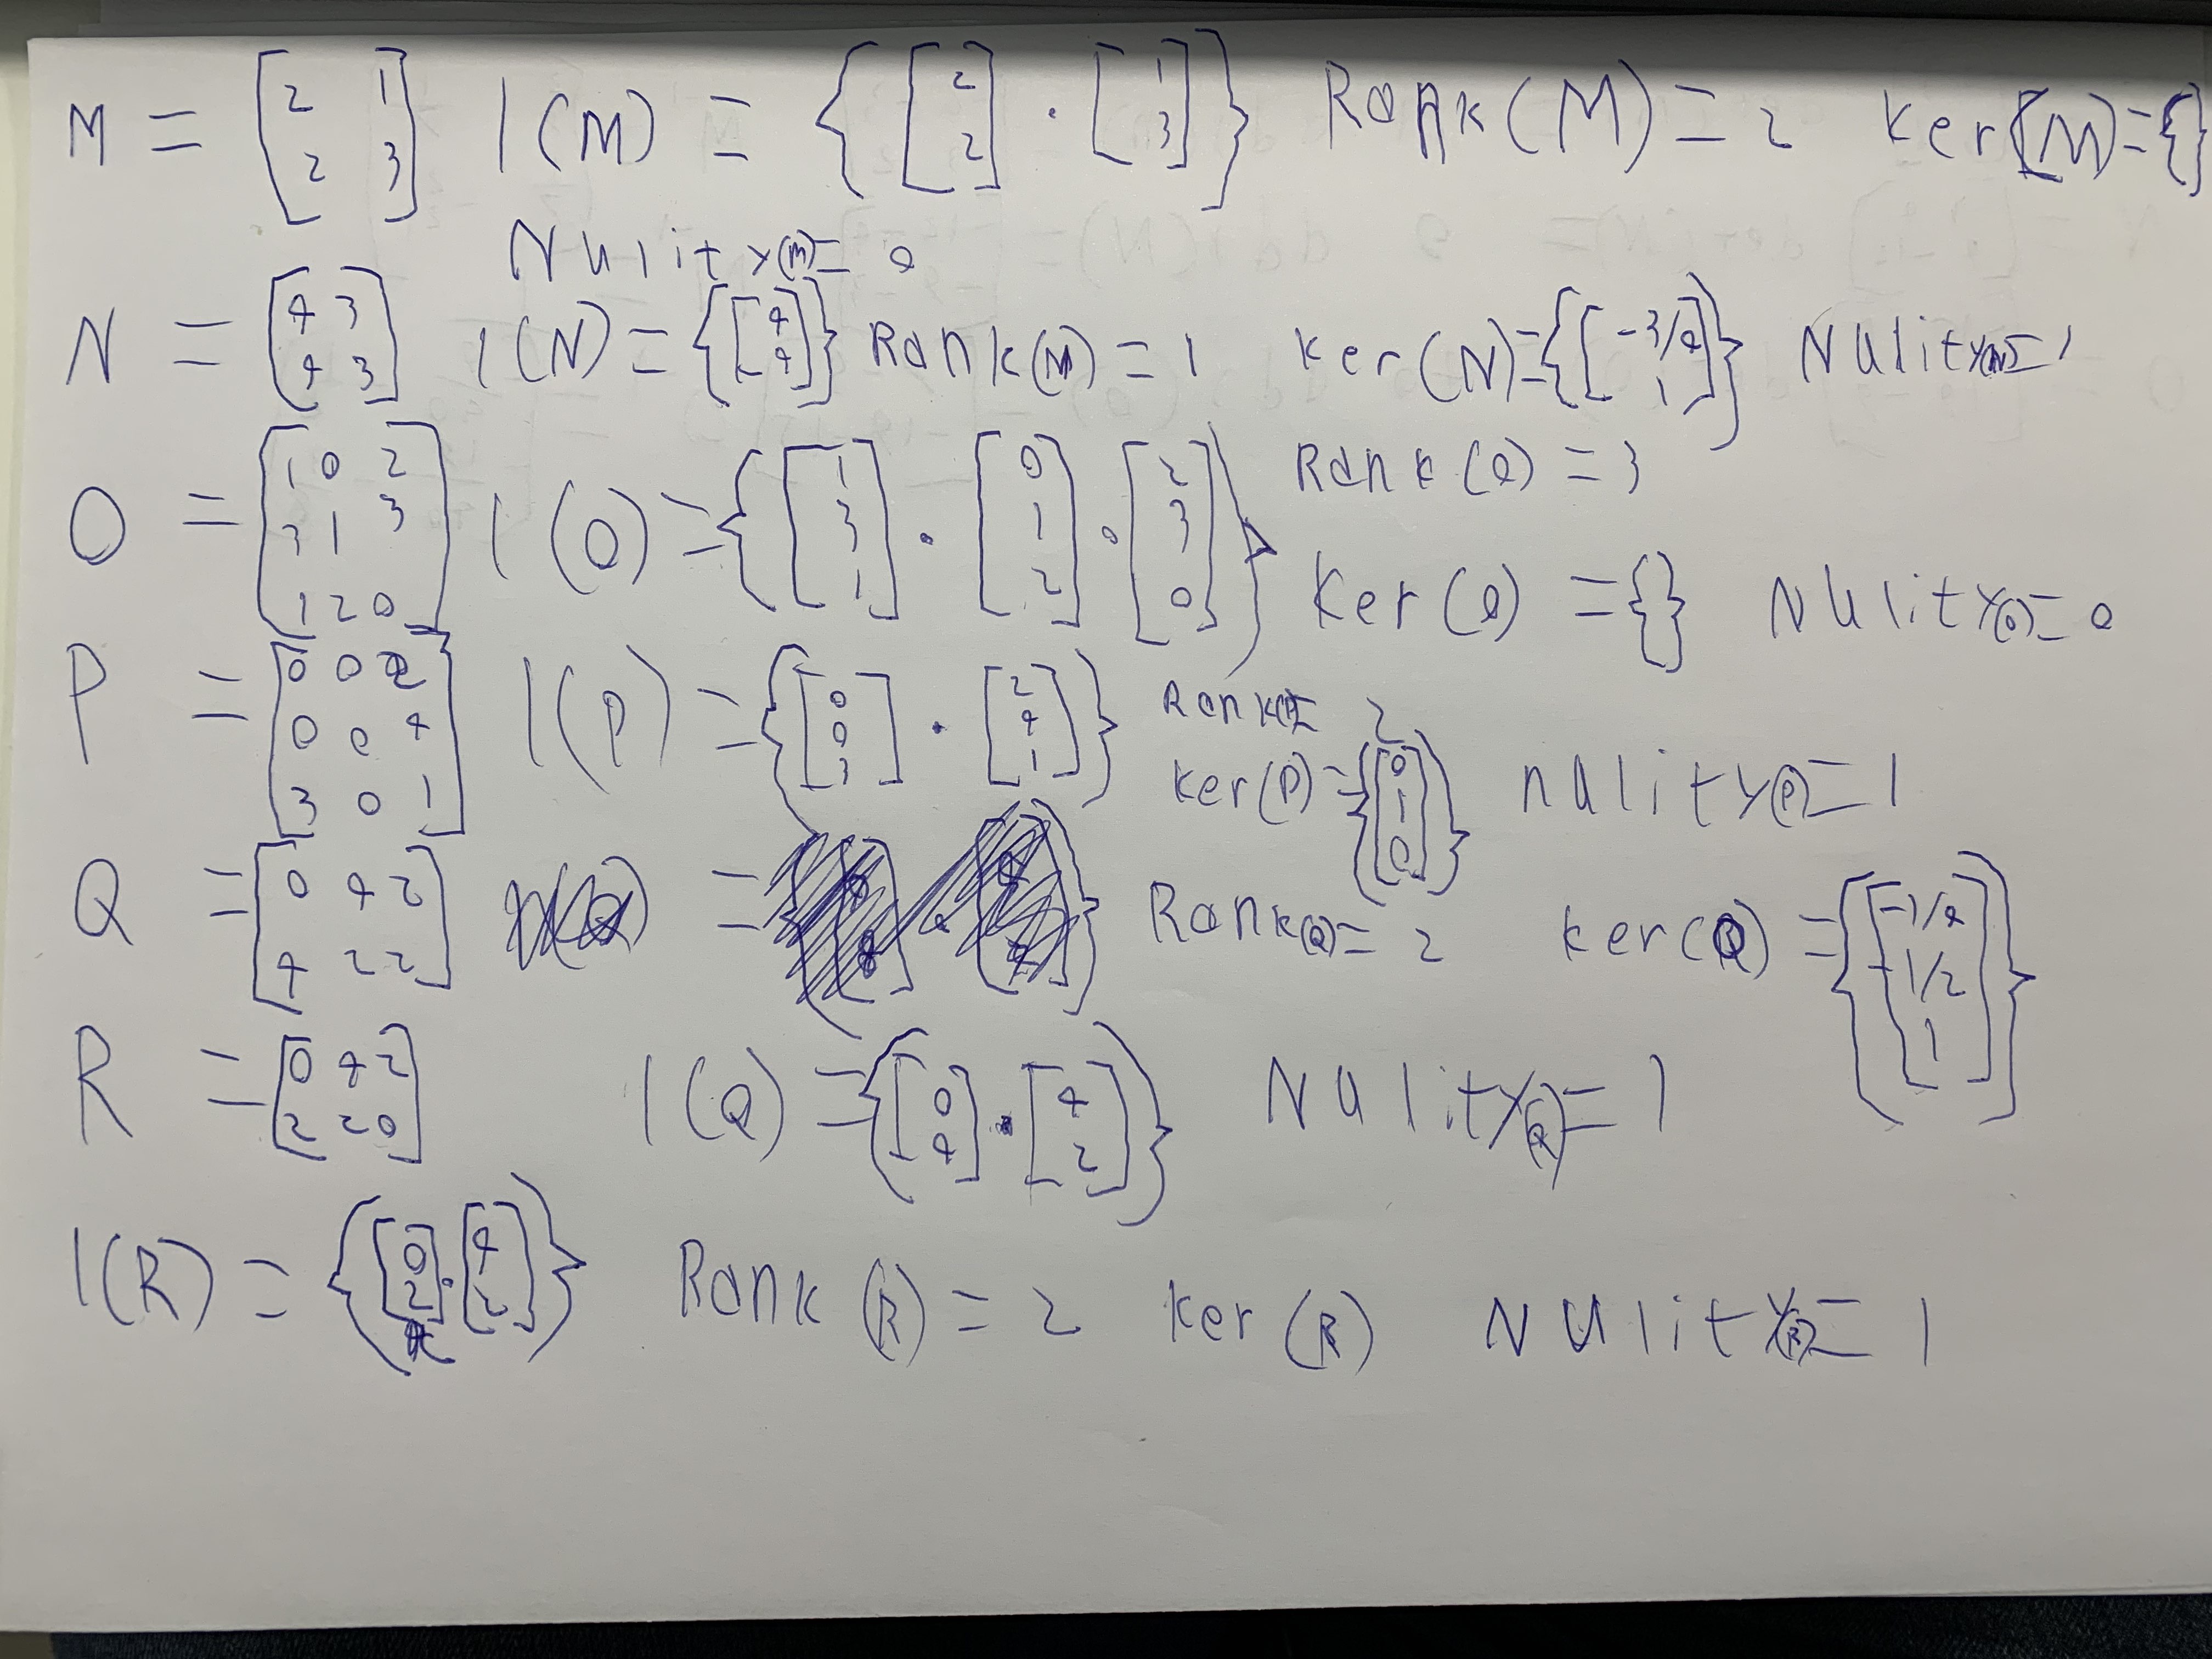 M = [2 1 2 3] I(M) = {[2 2] · [1 3]} Rank(M) = 2 Ker(M) = {}
Nulity(M) = 0
N = [4 3 4 3] I(N) = {[4 4]} Rank(N) = 1 Ker(N) = {[-3/4 1]} Nulity(N) = 1
O = [1 0 2 3 1 3 1 2 0] I(O) = {[1 3 1] · [0 1 2] · [2 3 0]} Rank(O) = 3
Ker(O) = {} Nulity(O) = 0
P = [0 0 2 0 0 4 3 0 1] I(P) = {[0 0 3] · [2 4 1]} Rank(P) = 2
Ker(P) = {[0 1 0]} nulity(P) = 1
Q = [0 4 2 4 2 2] = Rank(Q) = 2 Ker(Q) = {[-1/4 -1/2 1]}
R = [0 4 2 2 2 0] I(Q) = {[0 4] · [4 2]} Nulity(Q) = 1
I(R) = {[0 2] · [4 2]} Rank(R) = 2 Ker(R) Nulity(R) = 1